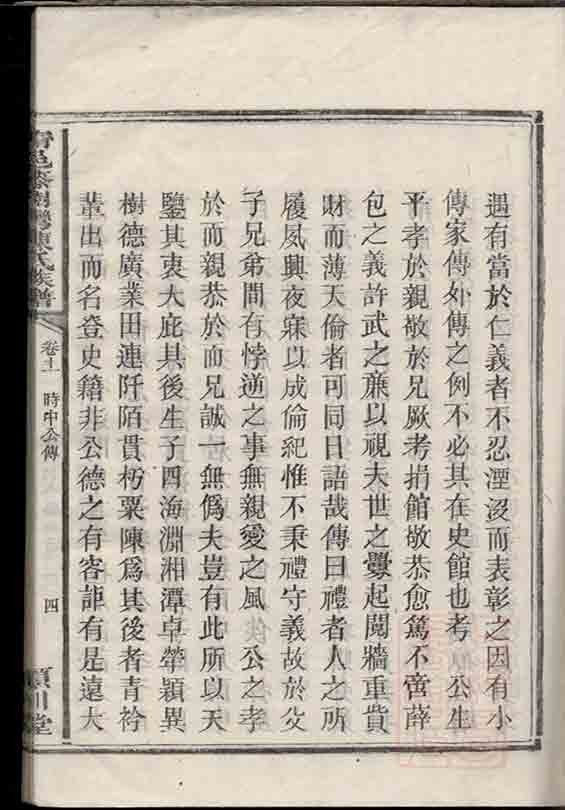 遇有當於仁義者不忍湮沒而表彰之因有小
傳家傳外傳之例不必其在史館也考　公生
平孝於親敬於兄厥考捐館敬恭愈篤不啻薛
包之義許武之廉以視夫世之釁起鬩牆重貲
財而薄天倫者可同日語哉傳曰禮者人之所
履夙興夜寐以成倫紀惟不秉禮守義故於父
子兄弟間有悖逆之事無親愛之風　公之孝
於而親恭於而兄誠一無僞夫豈有此所以天
鑒其衷大庇其後生子四海淵湘潭卓犖穎異
樹德廣業田連阡陌貫朽粟陳爲其後者青衿
輩出而名登史籍非公德之有容詎有是遠大
邑 陳氏族譜
卷十一
時中公傳
四
潁川堂